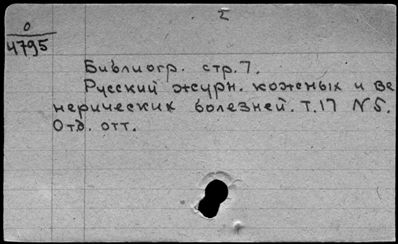 2
0
4795
Библиогр. стр. 7.
Русский журн. кожных и ве
нерических болезней. Т. 17 N 5.
Отд. отт.